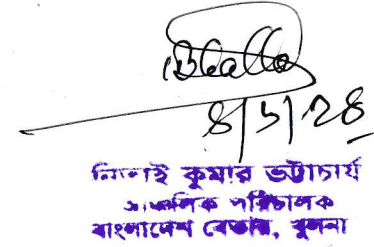 ৪/১/২৪
নিতাই কুমার ভট্টাচার্য
আঞ্চলিক পরিচালক
বাংলাদেশ বেতার, খুলনা